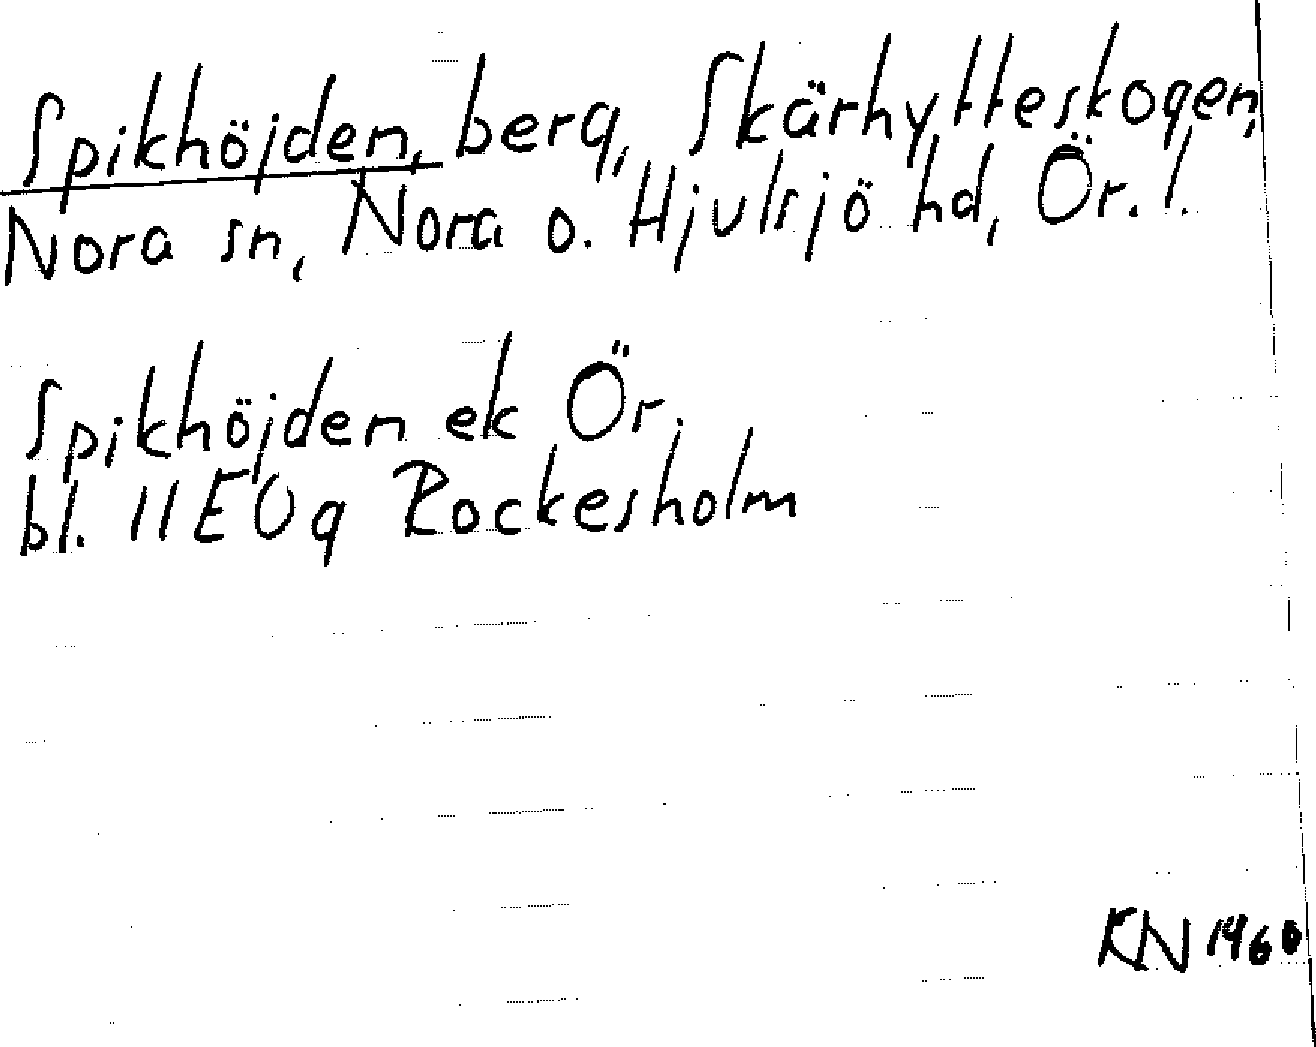 Spikhöjden, berg, Skärhytteskogen,
Nora sn, Nora o. Hjulsjö hd, Ör. l.
Spikhöjden ek Ör.
bl. 11E0g Rockesholm
KN 1960